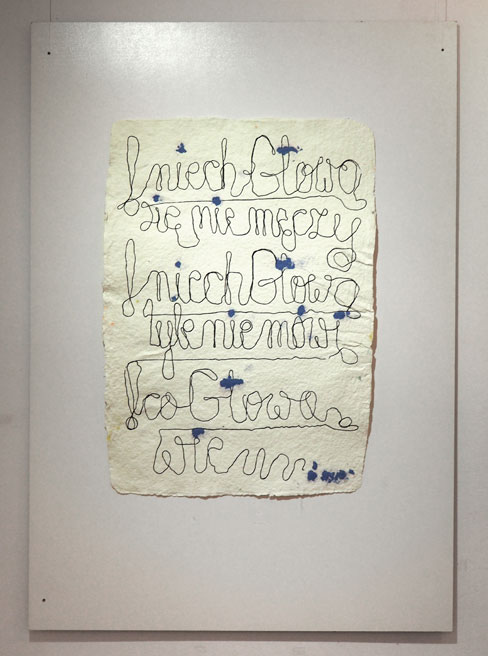 niech Głowa
się nie męczy
niech Głowa
tyle nie mówi
co Głowa
wie